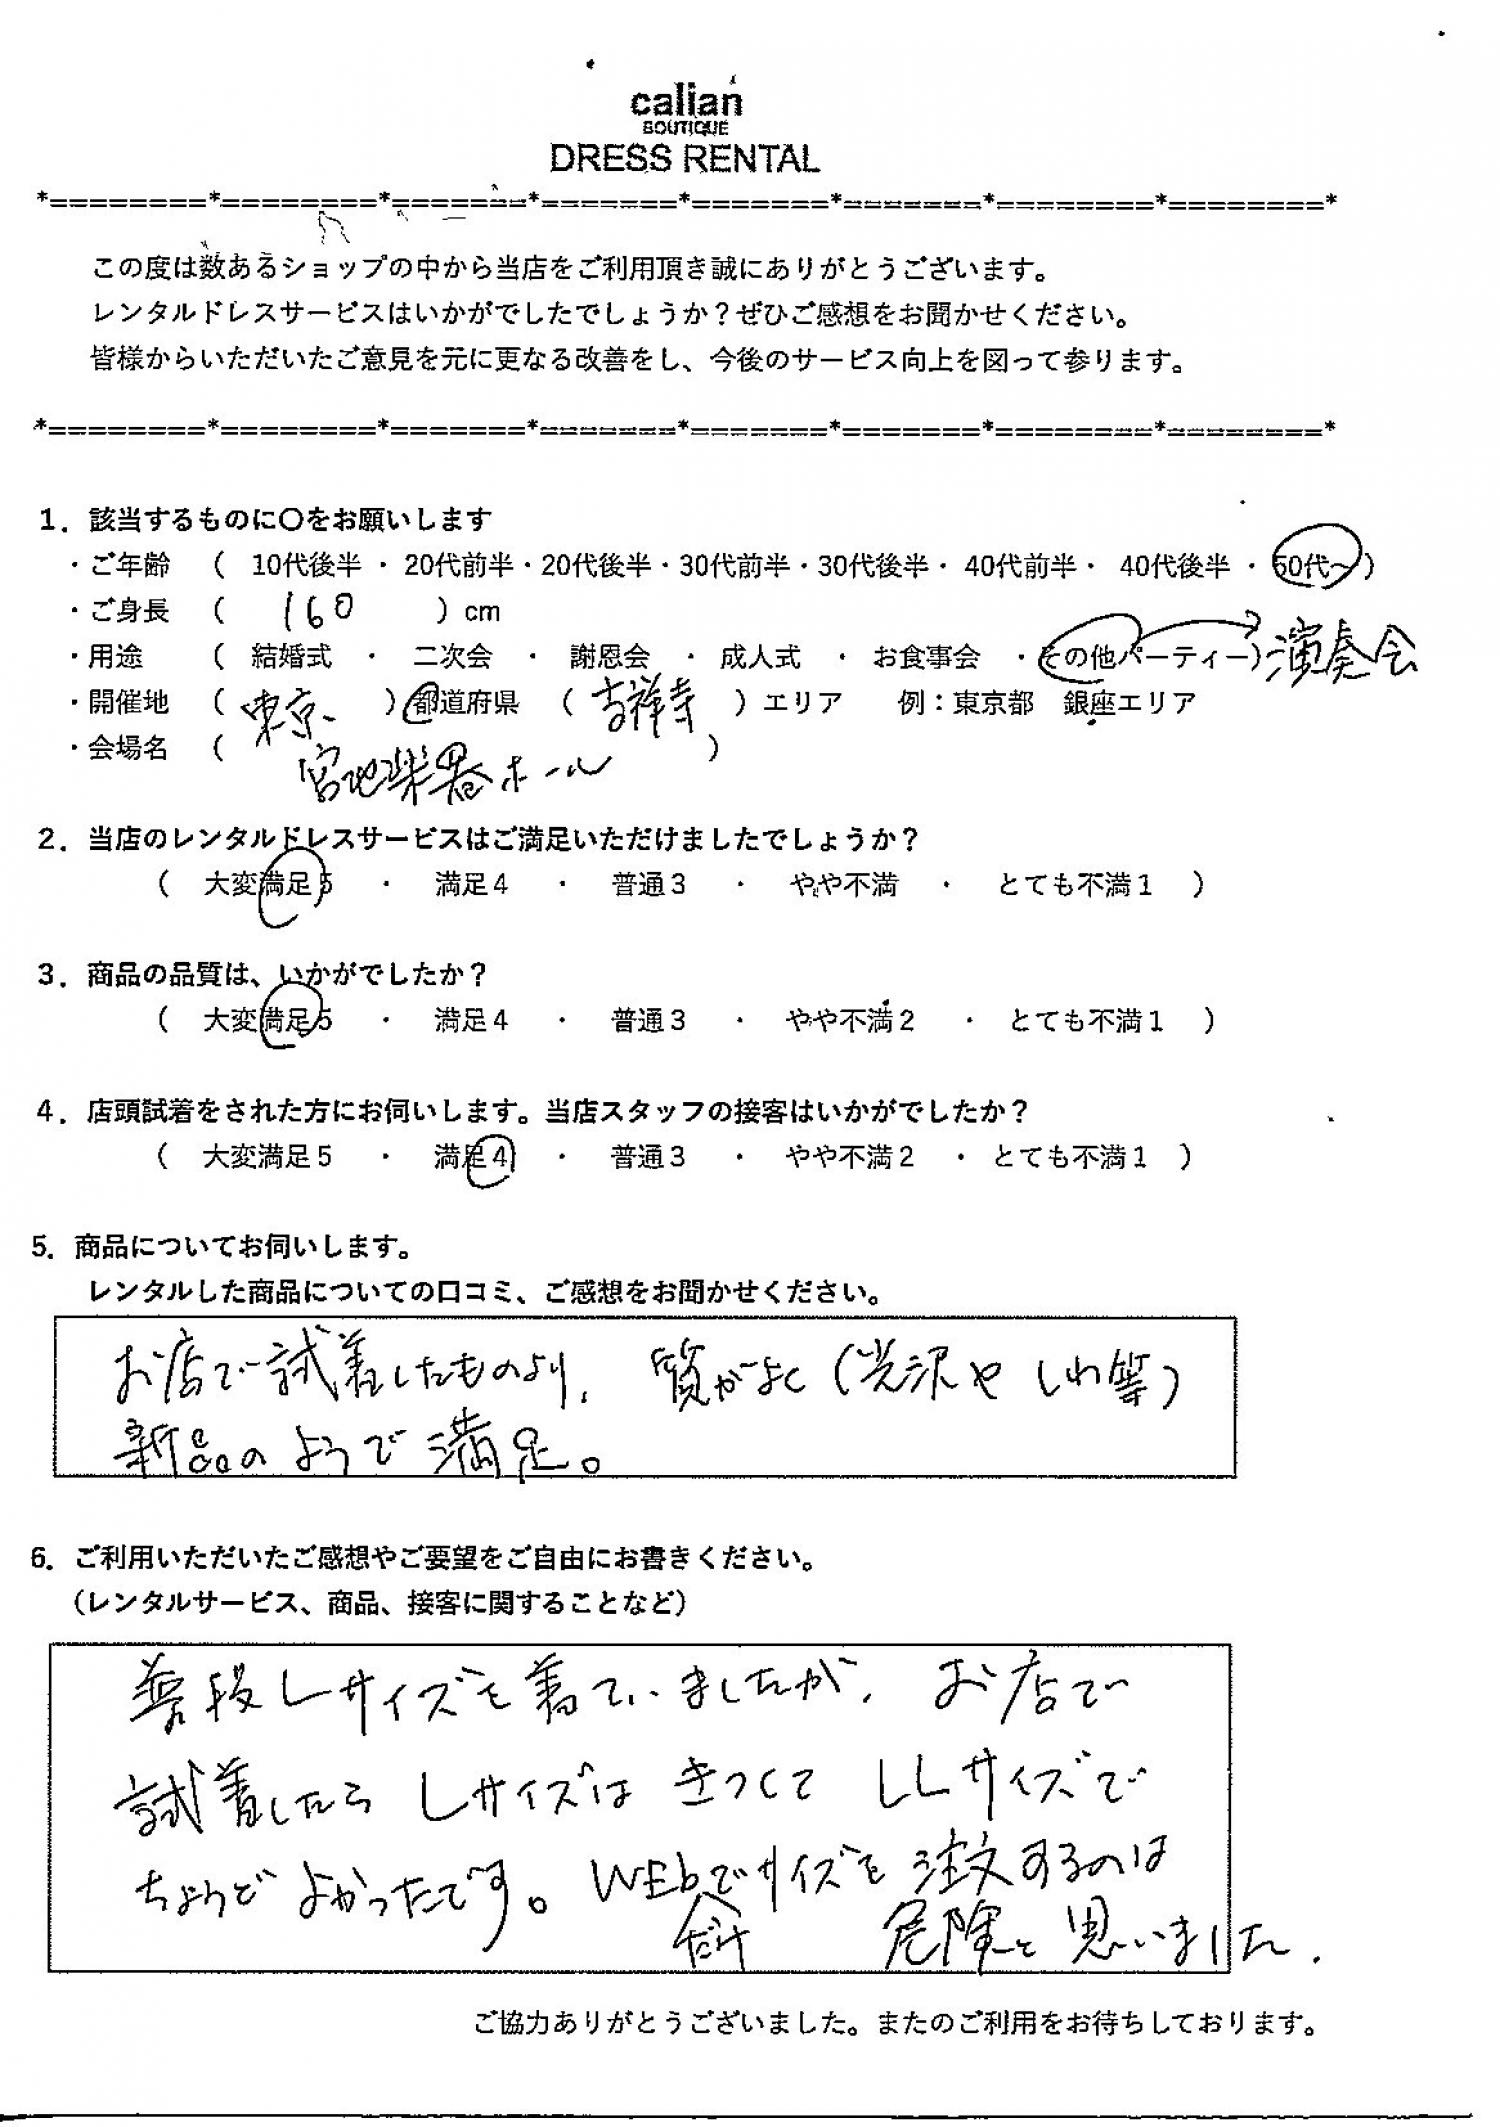 calian
BOUTIQUE
DRESS RENTAL
*========*========*=======*=======*=======*=======*========*========*
この度は数あるショップの中から当店をご利用頂き誠にありがとうございます。
レンタルドレスサービスはいかがでしたでしょうか？ぜひご感想をお聞かせください。
皆様からいただいたご意見を元に更なる改善をし、今後のサービス向上を図って参ります。
*========*========*=======*=======*=======*=======*========*========*
1．該当するものに〇をお願いします
・ご年齢 （ 10代後半・20代前半・20代後半・30代前半・30代後半・40代前半・40代後半・50代～）
・ご身長 （ 160 ）cm
・用途 （ 結婚式 ・ 二次会 ・ 謝恩会 ・ 成人式 ・ お食事会 ・その他パーティー）演奏会
・開催地 （ 東京 ）都道府県 （ 吉祥寺 ）エリア 例：東京都 銀座エリア
・会場名 （ 宮地楽器ホール ）
2．当店のレンタルドレスサービスはご満足いただけましたでしょうか？
（ 大変満足5 ・ 満足4 ・ 普通3 ・ やや不満 ・ とても不満1 ）
3．商品の品質は、いかがでしたか？
（ 大変満足5 ・ 満足4 ・ 普通3 ・ やや不満2 ・ とても不満1 ）
4．店頭試着をされた方にお伺いします。当店スタッフの接客はいかがでしたか？
（ 大変満足5 ・ 満足4 ・ 普通3 ・ やや不満2 ・ とても不満1 ）
5．商品についてお伺いします。
レンタルした商品についての口コミ、ご感想をお聞かせください。
お店で試着したものより、質がよく（光沢やしわ等）
新品のようで満足。
6．ご利用いただいたご感想やご要望をご自由にお書きください。
（レンタルサービス、商品、接客に関することなど）
普段Lサイズを着ていましたが、お店で
試着したらLサイズはきつくてLLサイズで
ちょうどよかったです。WEbだけでサイズを注文するのは
危険と思いました．
ご協力ありがとうございました。またのご利用をお待ちしております。